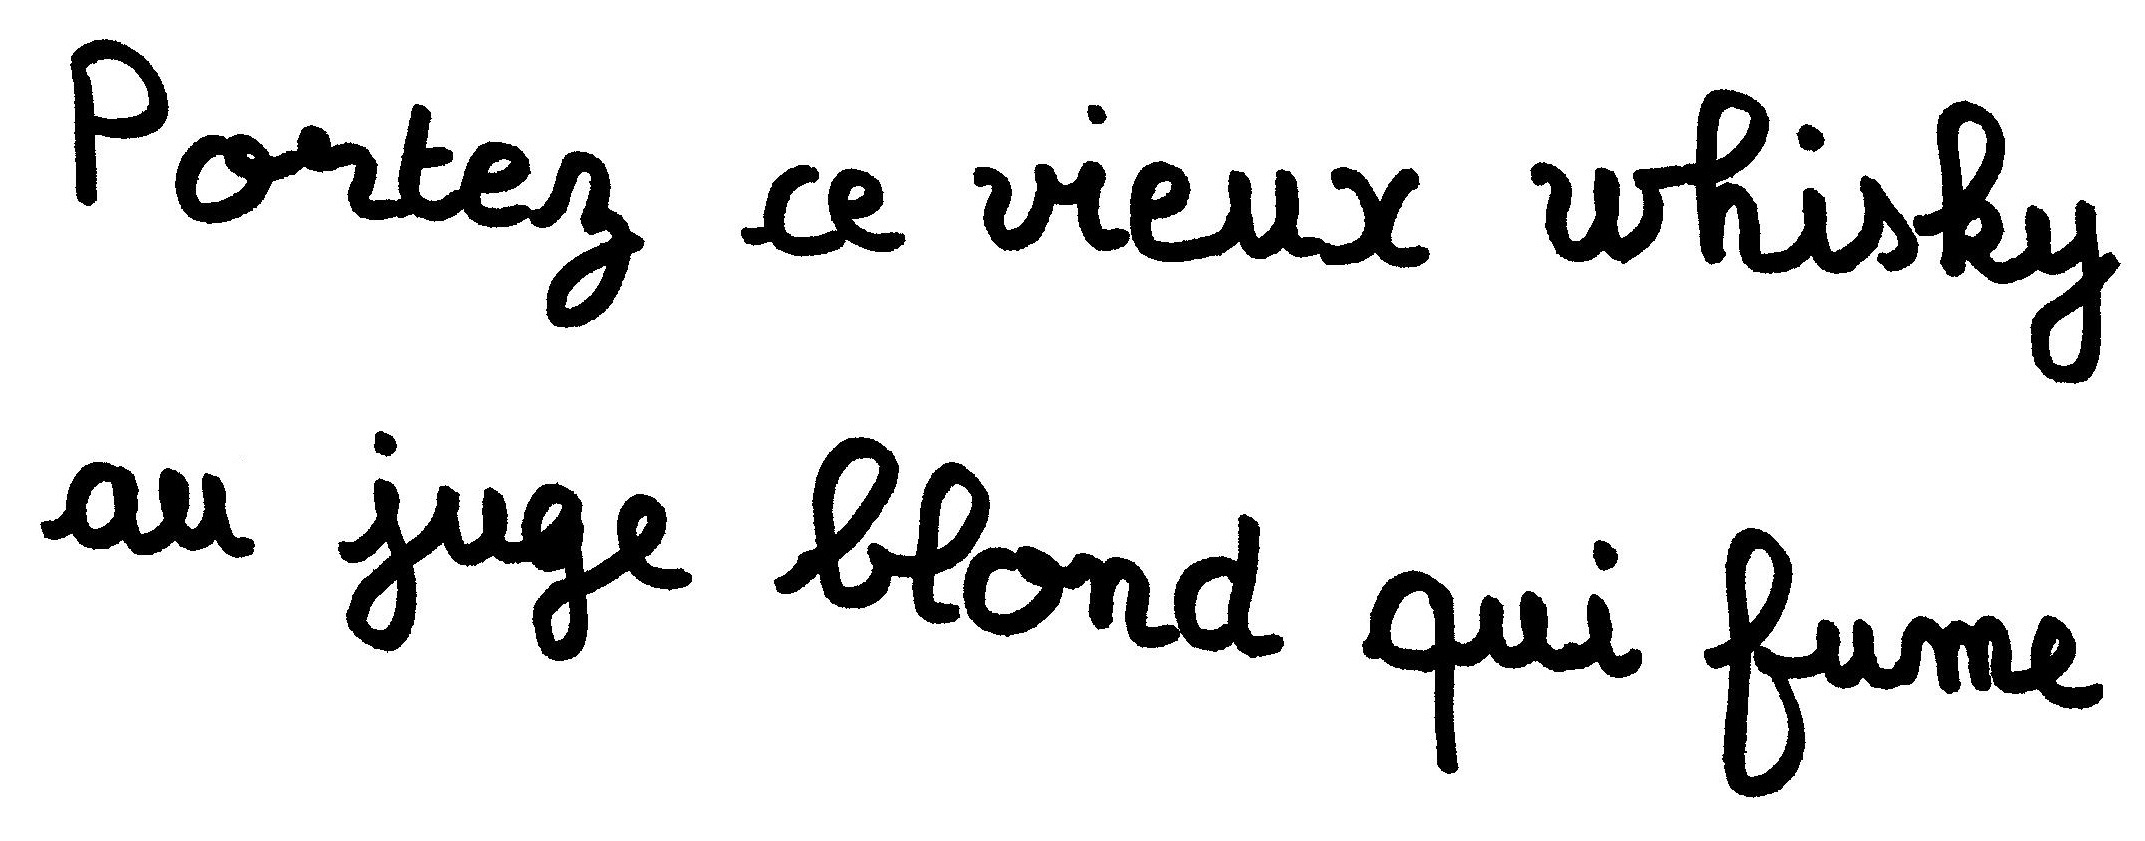 Portez ce vieux whisky
au juge blond qui fume